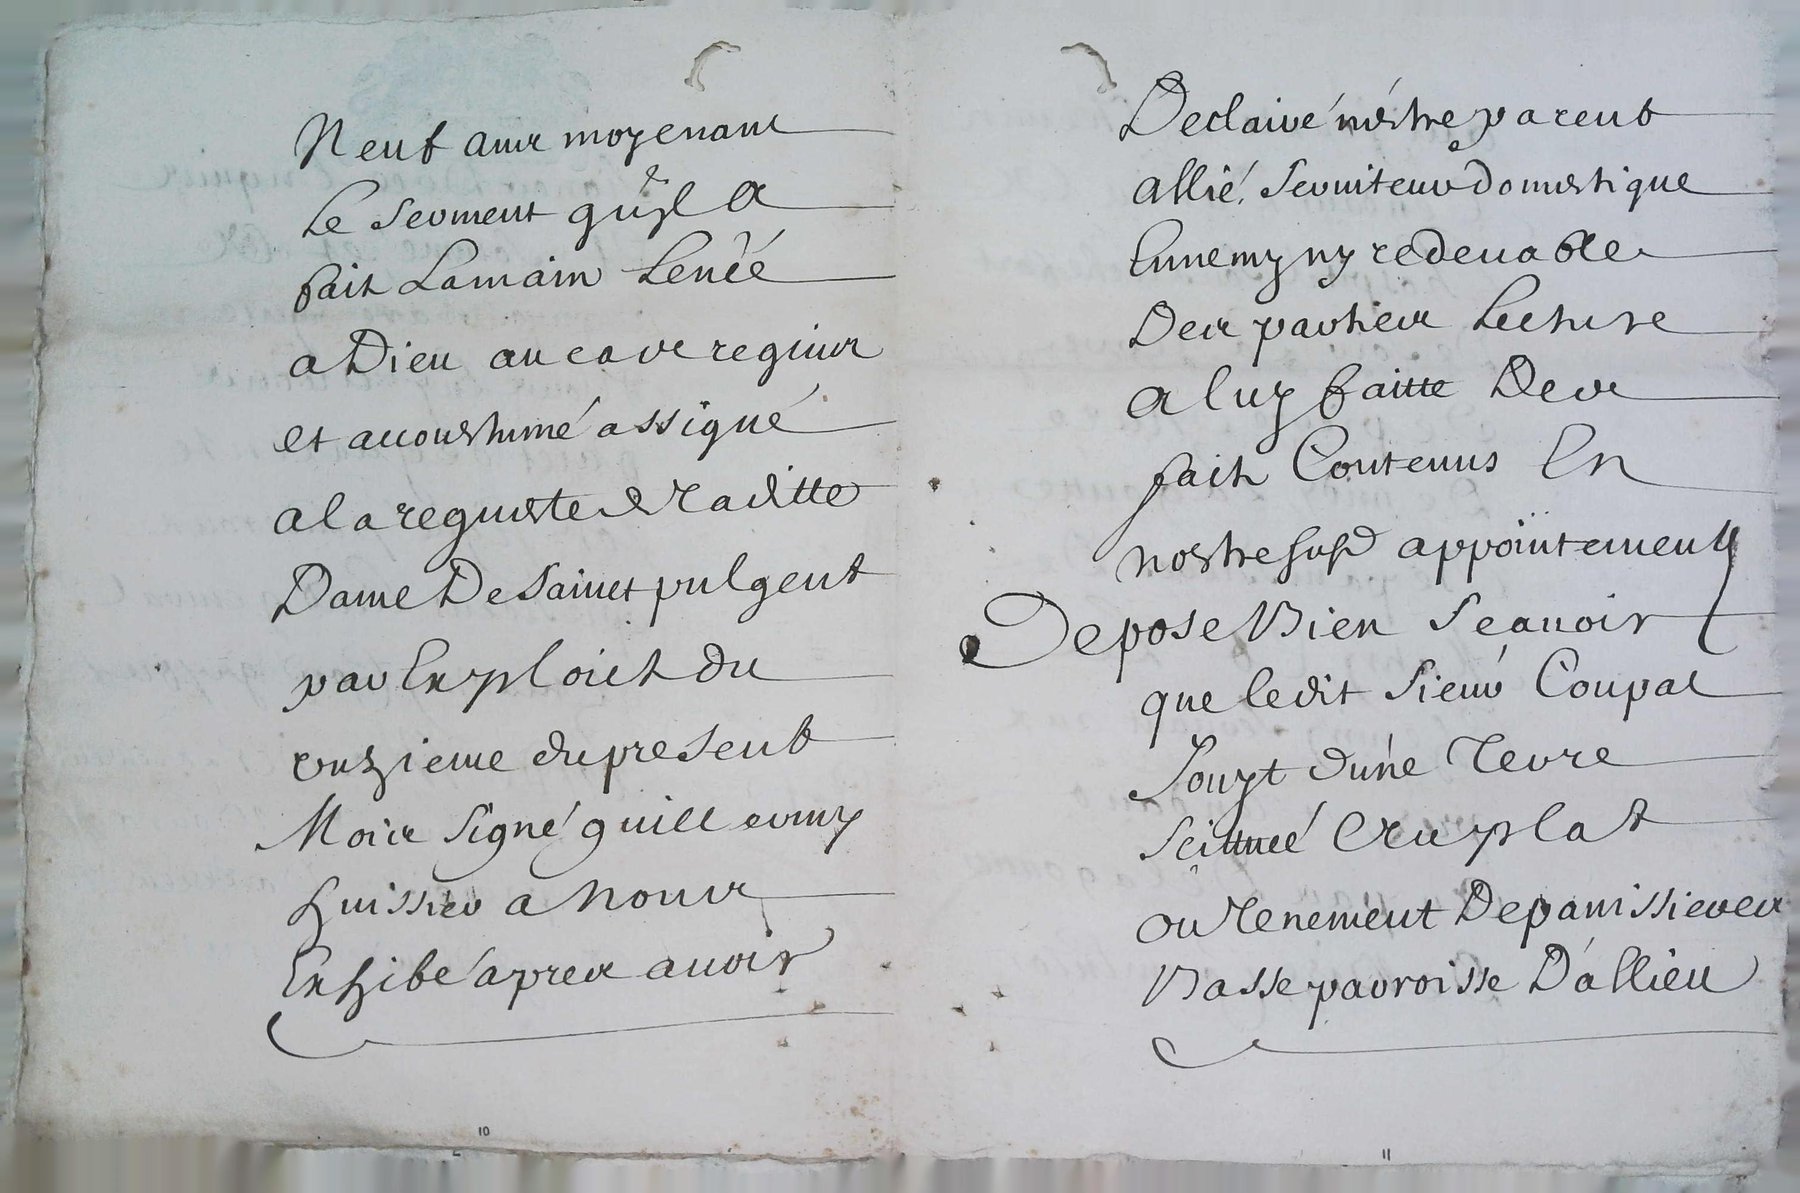 Neuf ans moyenant
Le serment qu'yl a
fait La main Levée
a Dieu au cas requis
et accoustumé assigné
a la requeste de laditte
Dame De Sainct pulgent
par Exploict du
onzieme du present
Mois signé guillermy
huissier a Nous
Exhibé apres avoir
10
Declairé n'estre parent
allié, serviteur domestique
Ennemy ny redevable
Des parties Lecture
a luy faitte Des
faits Contenus En
nostre susd appointement
Depose Bien sçavoir
que ledit sieur Coupat
Jouyt d'une Terre
scituée Au plat
ou Tenement De panissieres
Basse parroisse D'allieu
11